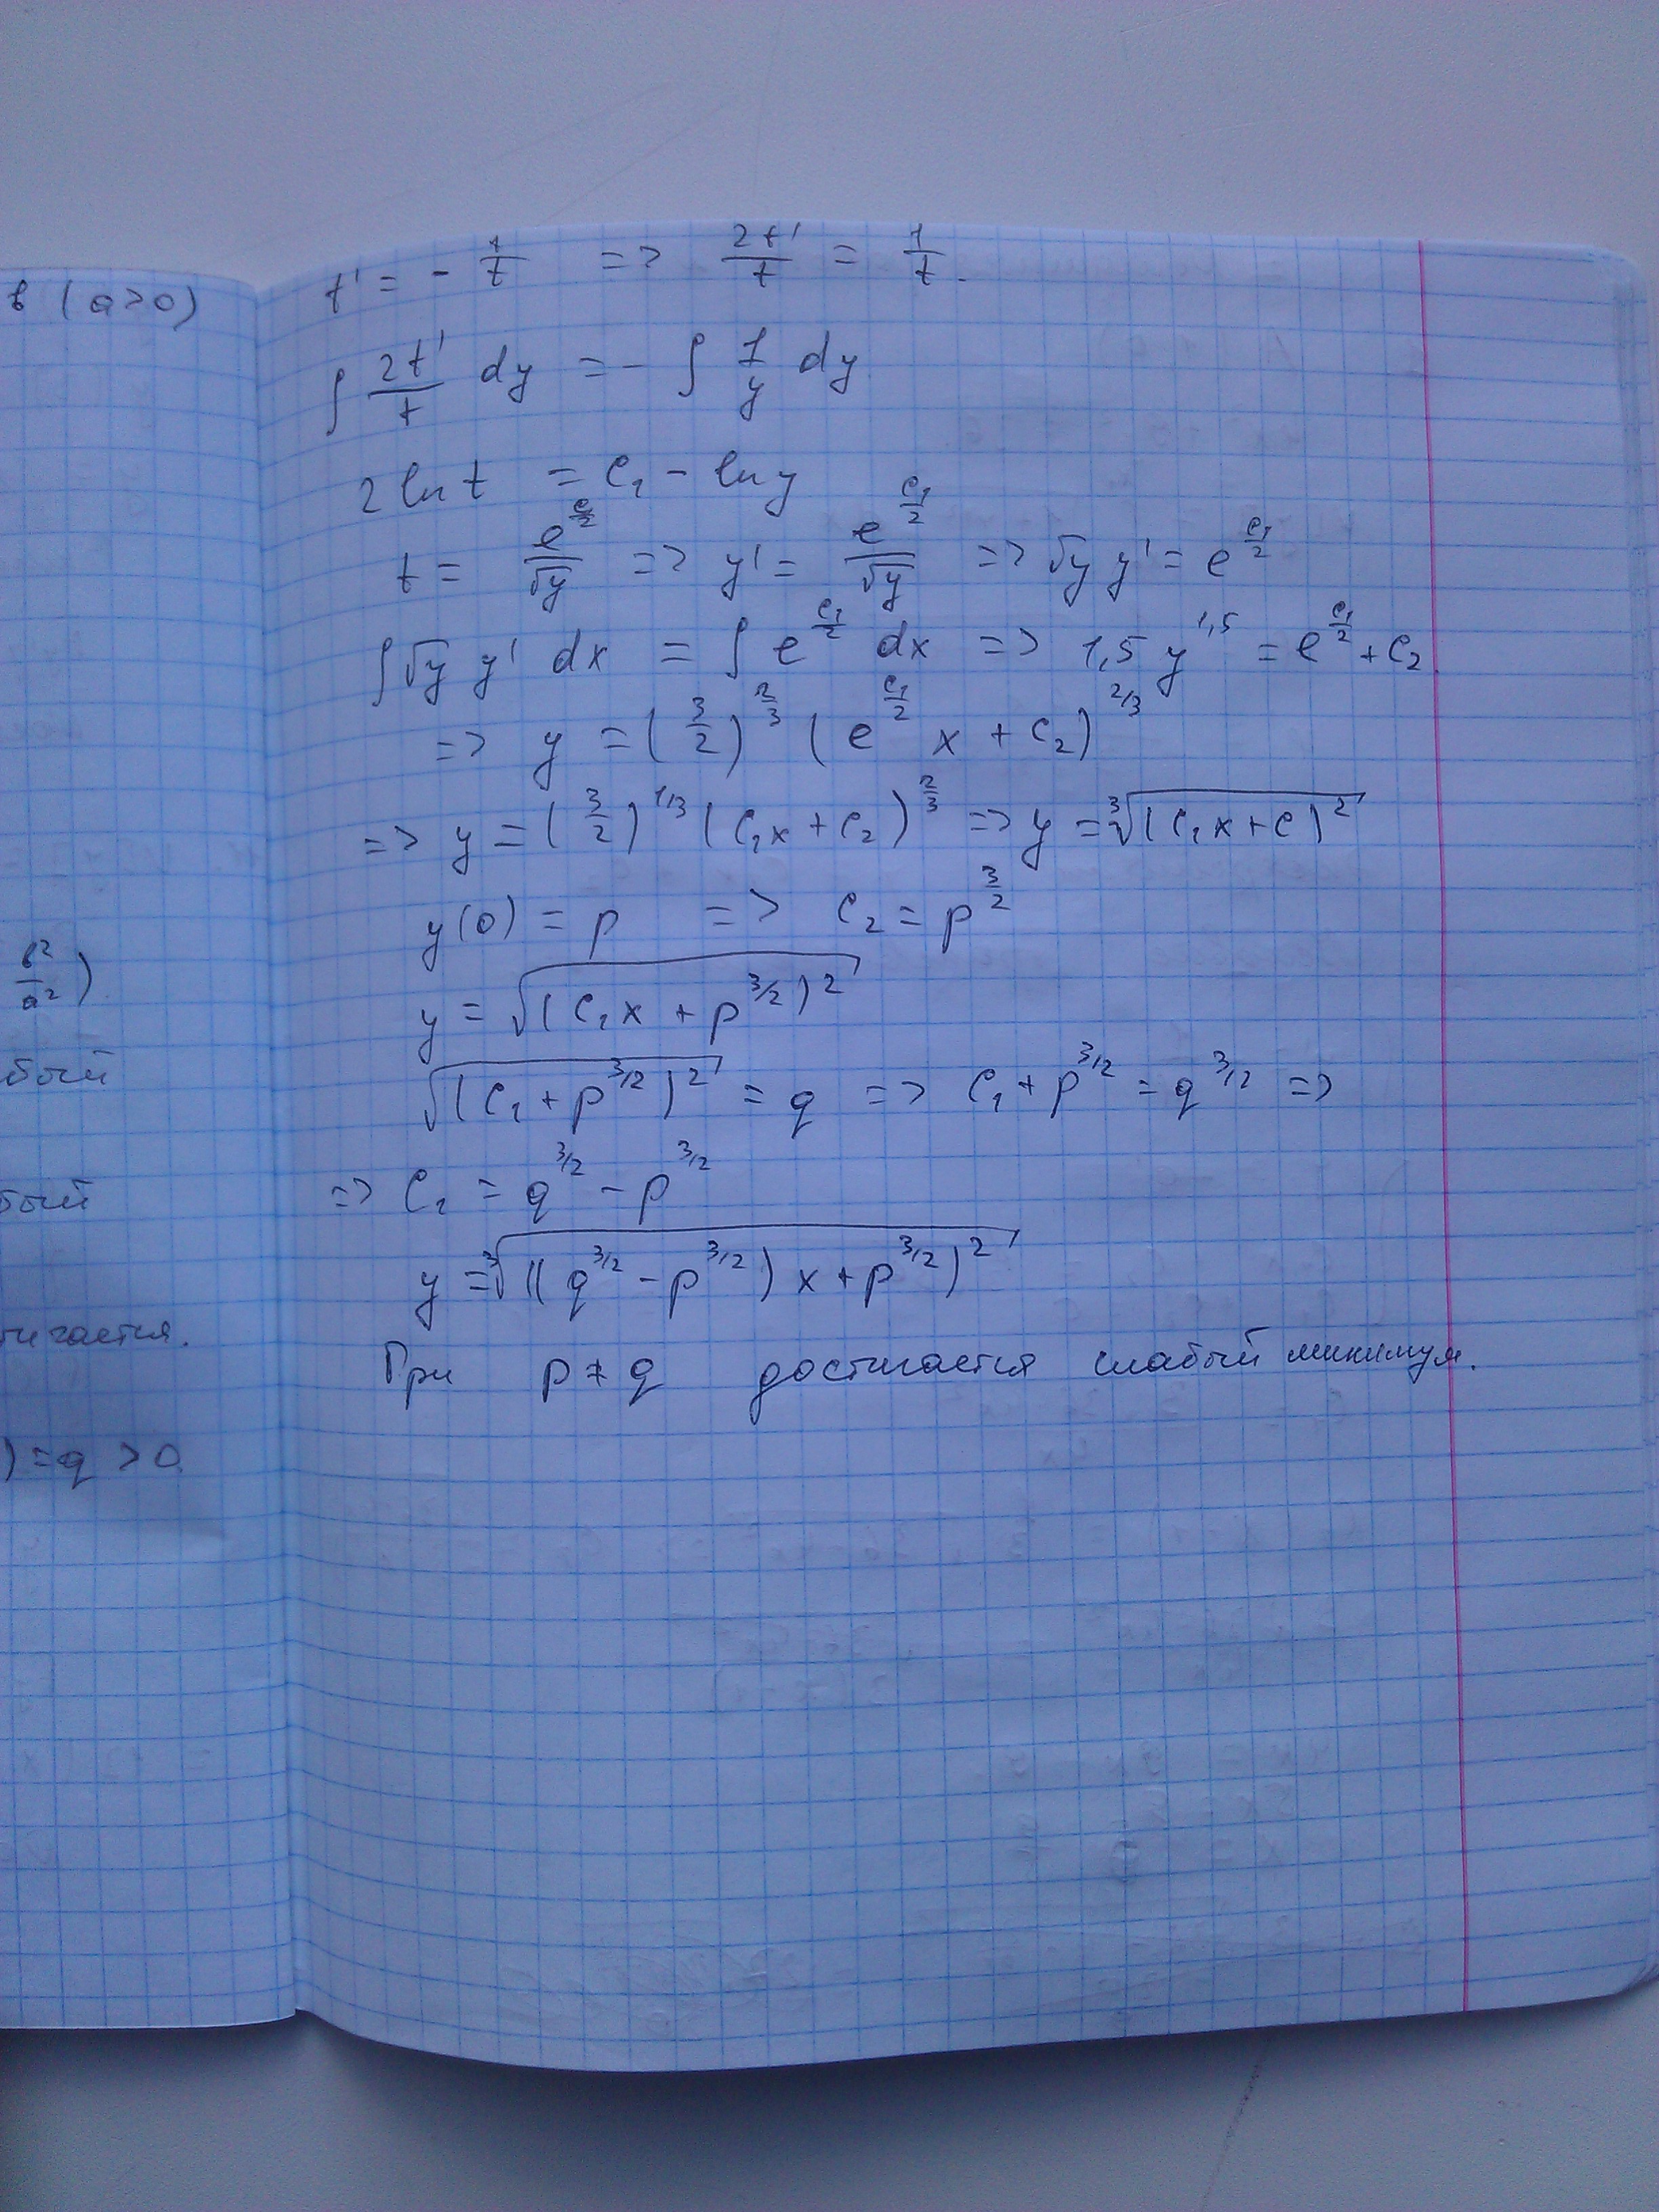 в (a>0)
b²/a²)
бый
бый
тигается.
)=q >0
t' = - 1/t => 2t'/t = 1/t.
∫ 2t'/t dy = - ∫ 1/y dy
2 ln t = C₁ - ln y
t = e^(C/2)/√y => y' = e^(C₁/2)/√y => √y y' = e^(C₁/2)
∫ √y y' dx = ∫ e^(C₁/2) dx => 1,5 y^1,5 = e^(C₁/2) + C₂
=> y = (3/2)^(2/3) (e^(C₁/2) x + C₂)^(2/3)
=> y = (3/2)^(1/3) (C₁x + C₂)^(2/3) => y = ∛((C₁x + C)²)
y(0) = p => C₂ = p^(3/2)
y = √((C₁x + p^(3/2))²)
√((C₁ + p^(3/2))²) = q => C₁ + p^(3/2) = q^(3/2) =>
=> C₁ = q^(3/2) - p^(3/2)
y = ∛(((q^(3/2) - p^(3/2)) x + p^(3/2))²)
При p ≠ q достигается слабый минимум.